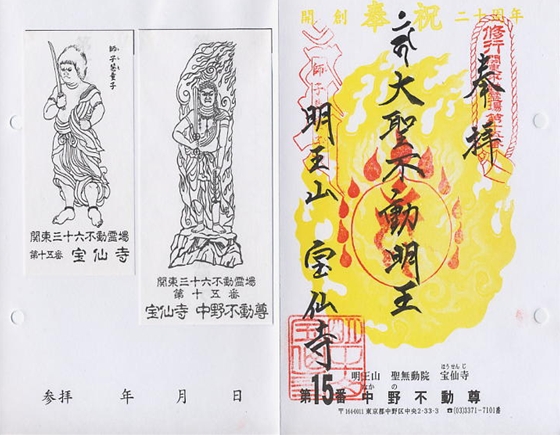 師子光童子
関東三十六不動霊場
第十五番 宝仙寺
関東三十六不動霊場
第十五番
宝仙寺 中野不動尊
参拝 年 月 日
開創 奉祝 二十周年
奉拝
大聖不動明王
明王山 宝仙寺
ほうせんじ
明王山 聖無動院 宝仙寺
なかの
第15番 中野不動尊
〒164-0011 東京都中野区中央2-33-3 ☎(03)3371-7101番